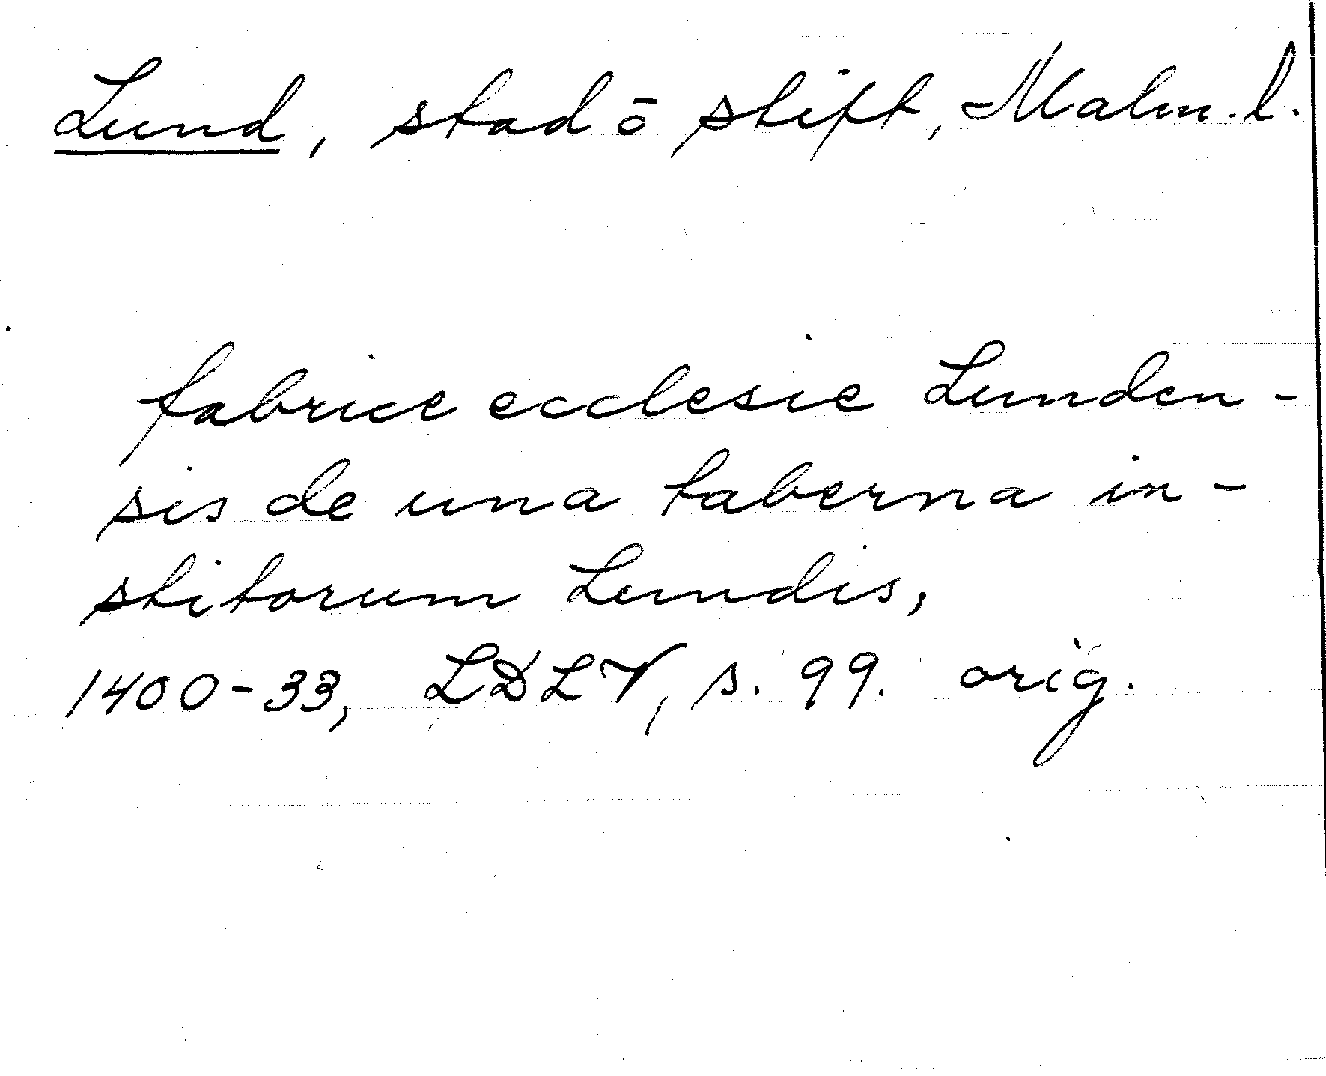 Lund, stad ō stift, Malm. l.
fabrice ecclesie Lunden-
sis de una taberna in-
stitorum Lundis,
1400-33, LDLV, s. 99. orig.